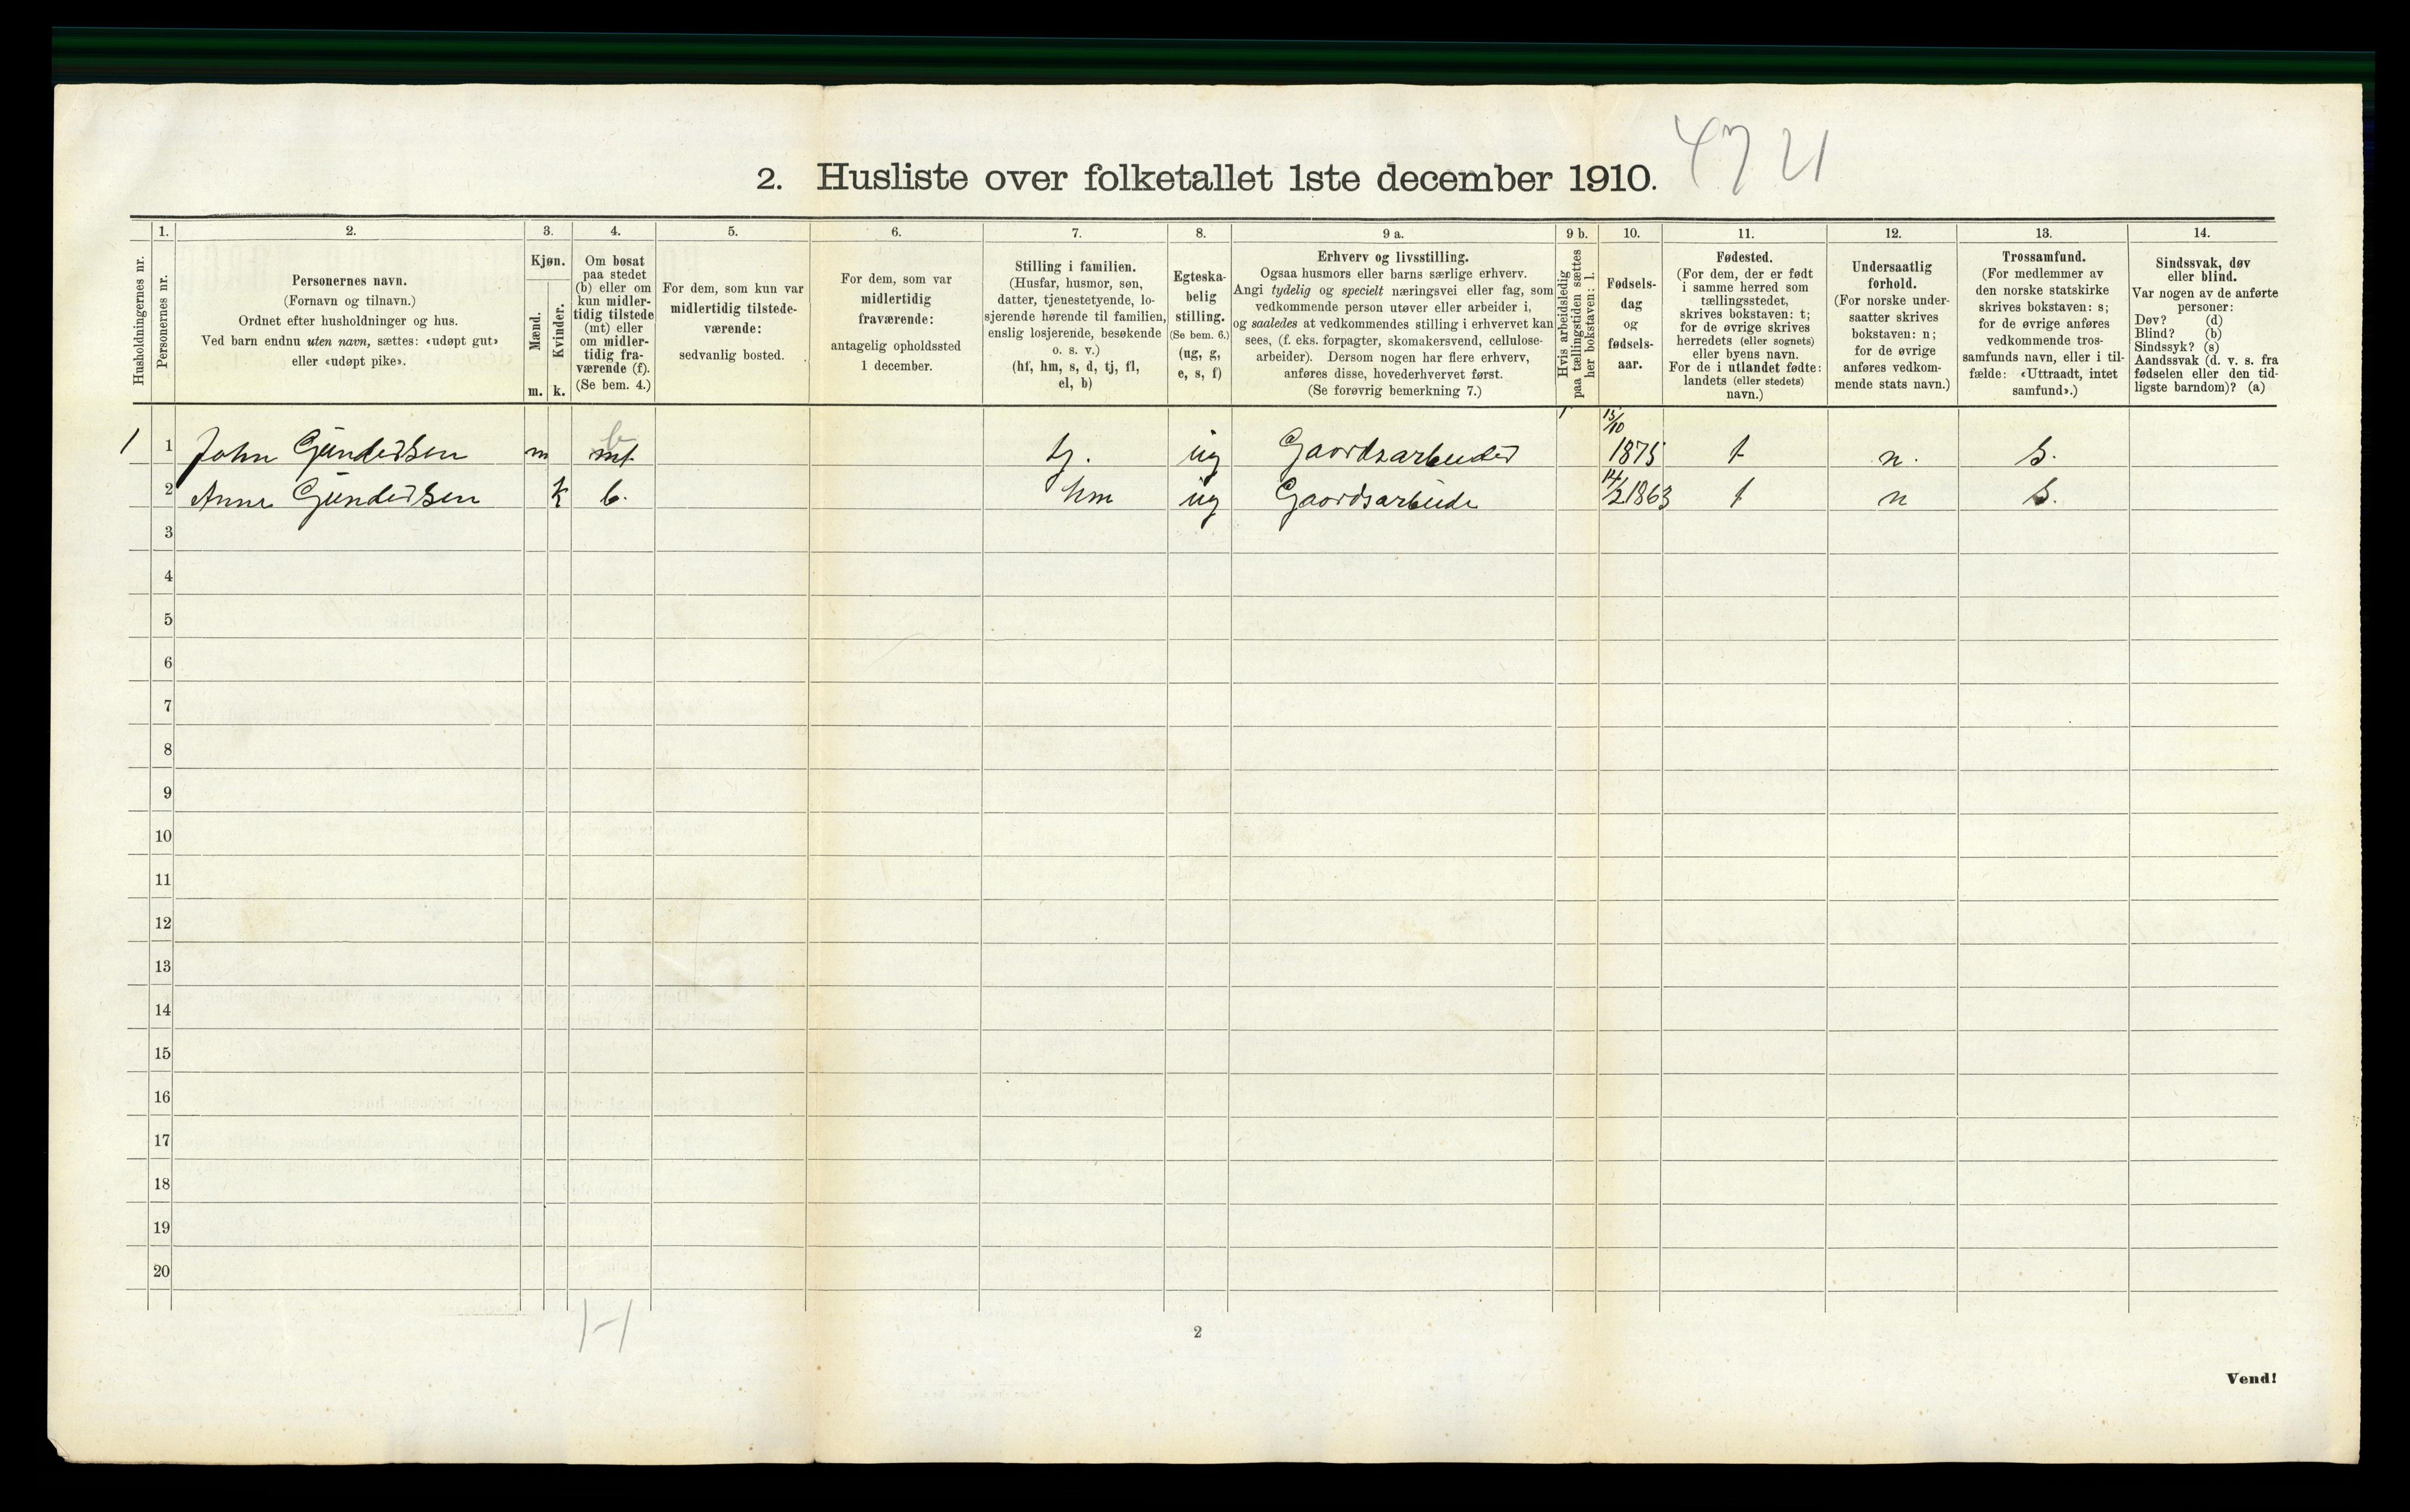 4721
2. Husliste over folketallet 1ste december 1910.
Husholdningernes nr.
1.
Personernes nr.
2.
Personernes navn.
(Fornavn og tilnavn.)
Ordnet efter husholdninger og hus.
Ved barn endnu uten navn, sættes: «udøpt gut»
eller «udøpt pike».
3.
Kjøn.
Mænd.
Kvinder.
m. k.
4.
Om bosat
paa stedet
(b) eller om
kun midler-
tidig tilstede
(mt) eller
om midler-
tidig fra-
værende (f).
(Se bem. 4.)
5.
For dem, som kun var
midlertidig tilstede-
værende:
sedvanlig bosted.
6.
For dem, som var
midlertidig
fraværende:
antagelig opholdssted
1 december.
7.
Stilling i familien.
(Husfar, husmor, søn,
datter, tjenestetyende, lo-
sjerende hørende til familien,
enslig losjerende, besøkende
o. s. v.)
(hf, hm, s, d, tj, fl,
el, b)
8.
Egteska-
belig
stilling.
(Se bem. 6.)
(ug, g,
e, s, f)
9 a.
Erhverv og livsstilling.
Ogsaa husmors eller barns særlige erhverv.
Angi tydelig og specielt næringsvei eller fag, som
vedkommende person utøver eller arbeider i,
og saaledes at vedkommendes stilling i erhvervet kan
sees, (f. eks. forpagter, skomakersvend, cellulose-
arbeider). Dersom nogen har flere erhverv,
anføres disse, hovederhvervet først.
(Se forøvrig bemerkning 7.)
9 b.
Hvis arbeidsledig
paa tællingstiden sættes
her bokstaven: l.
10.
Fødsels-
dag
og
fødsels-
aar.
11.
Fødested.
(For dem, der er født
i samme herred som
tællingsstedet,
skrives bokstaven: t;
for de øvrige skrives
herredets (eller sognets)
eller byens navn.
For de i utlandet fødte:
landets (eller stedets)
navn.)
12.
Undersaatlig
forhold.
(For norske under-
saatter skrives
bokstaven: n;
for de øvrige
anføres vedkom-
mende stats navn.)
13.
Trossamfund.
(For medlemmer av
den norske statskirke
skrives bokstaven: s;
for de øvrige anføres
vedkommende tros-
samfunds navn, eller i til-
fælde: «Uttraadt, intet
samfund».)
14.
Sindssvak, døv
eller blind.
Var nogen av de anførte
personer:
Døv? (d)
Blind? (b)
Sindssyk? (s)
Aandssvak (d. v. s. fra
fødselen eller den tid-
ligste barndom)? (a)
1 1 John Gundersen m b mt tj. ug Gaardsarbeider 15/10 1875 t n. s.
2 Anne Gundersen k b. hm ug Gaardsarbeide 14/2 1863 t n s.
3
4
5
6
7
8
9
10
11
12
13
14
15
16
17
18
19
20
1-1
2
Vend!